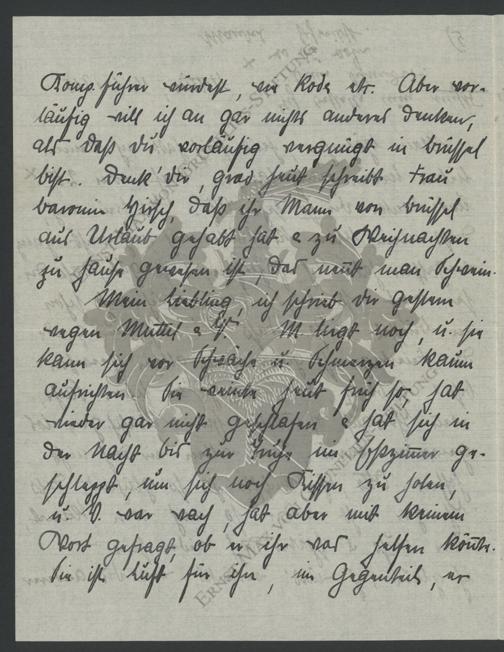 Komp.führer würdest, wie Koda etc. Aber vor-
läufig will ich an gar nichts anderes denken,
als daß Du vorläufig vergnügt in Brüssel
bist. Denk' Dir, grad heut schreibt Frau
Baronin Hirsch daß ihr Mann von Brüssel
aus Urlaub gehabt hat & zu Weihnachten
zu Hause gewesen ist, das nennt man Schwein.
Mein Liebling, ich schrieb Dir gestern
wegen Muttel & V. M liegt noch, u. sie
kann sich vor Schwäche u. Schmerzen kaum
aufrichten. Sie weinte heut früh so, hat
wieder gar nicht geschlafen & hat sich in
der Nacht bis zur im Eßzimmer ge-
schleppt, um sich noch Kissen zu holen,
u. V. war wach, hat aber mit keinem
Wort gefragt, ob er ihr was helfen könnte.
Sie ist Luft für ihn, im Gegenteil, er